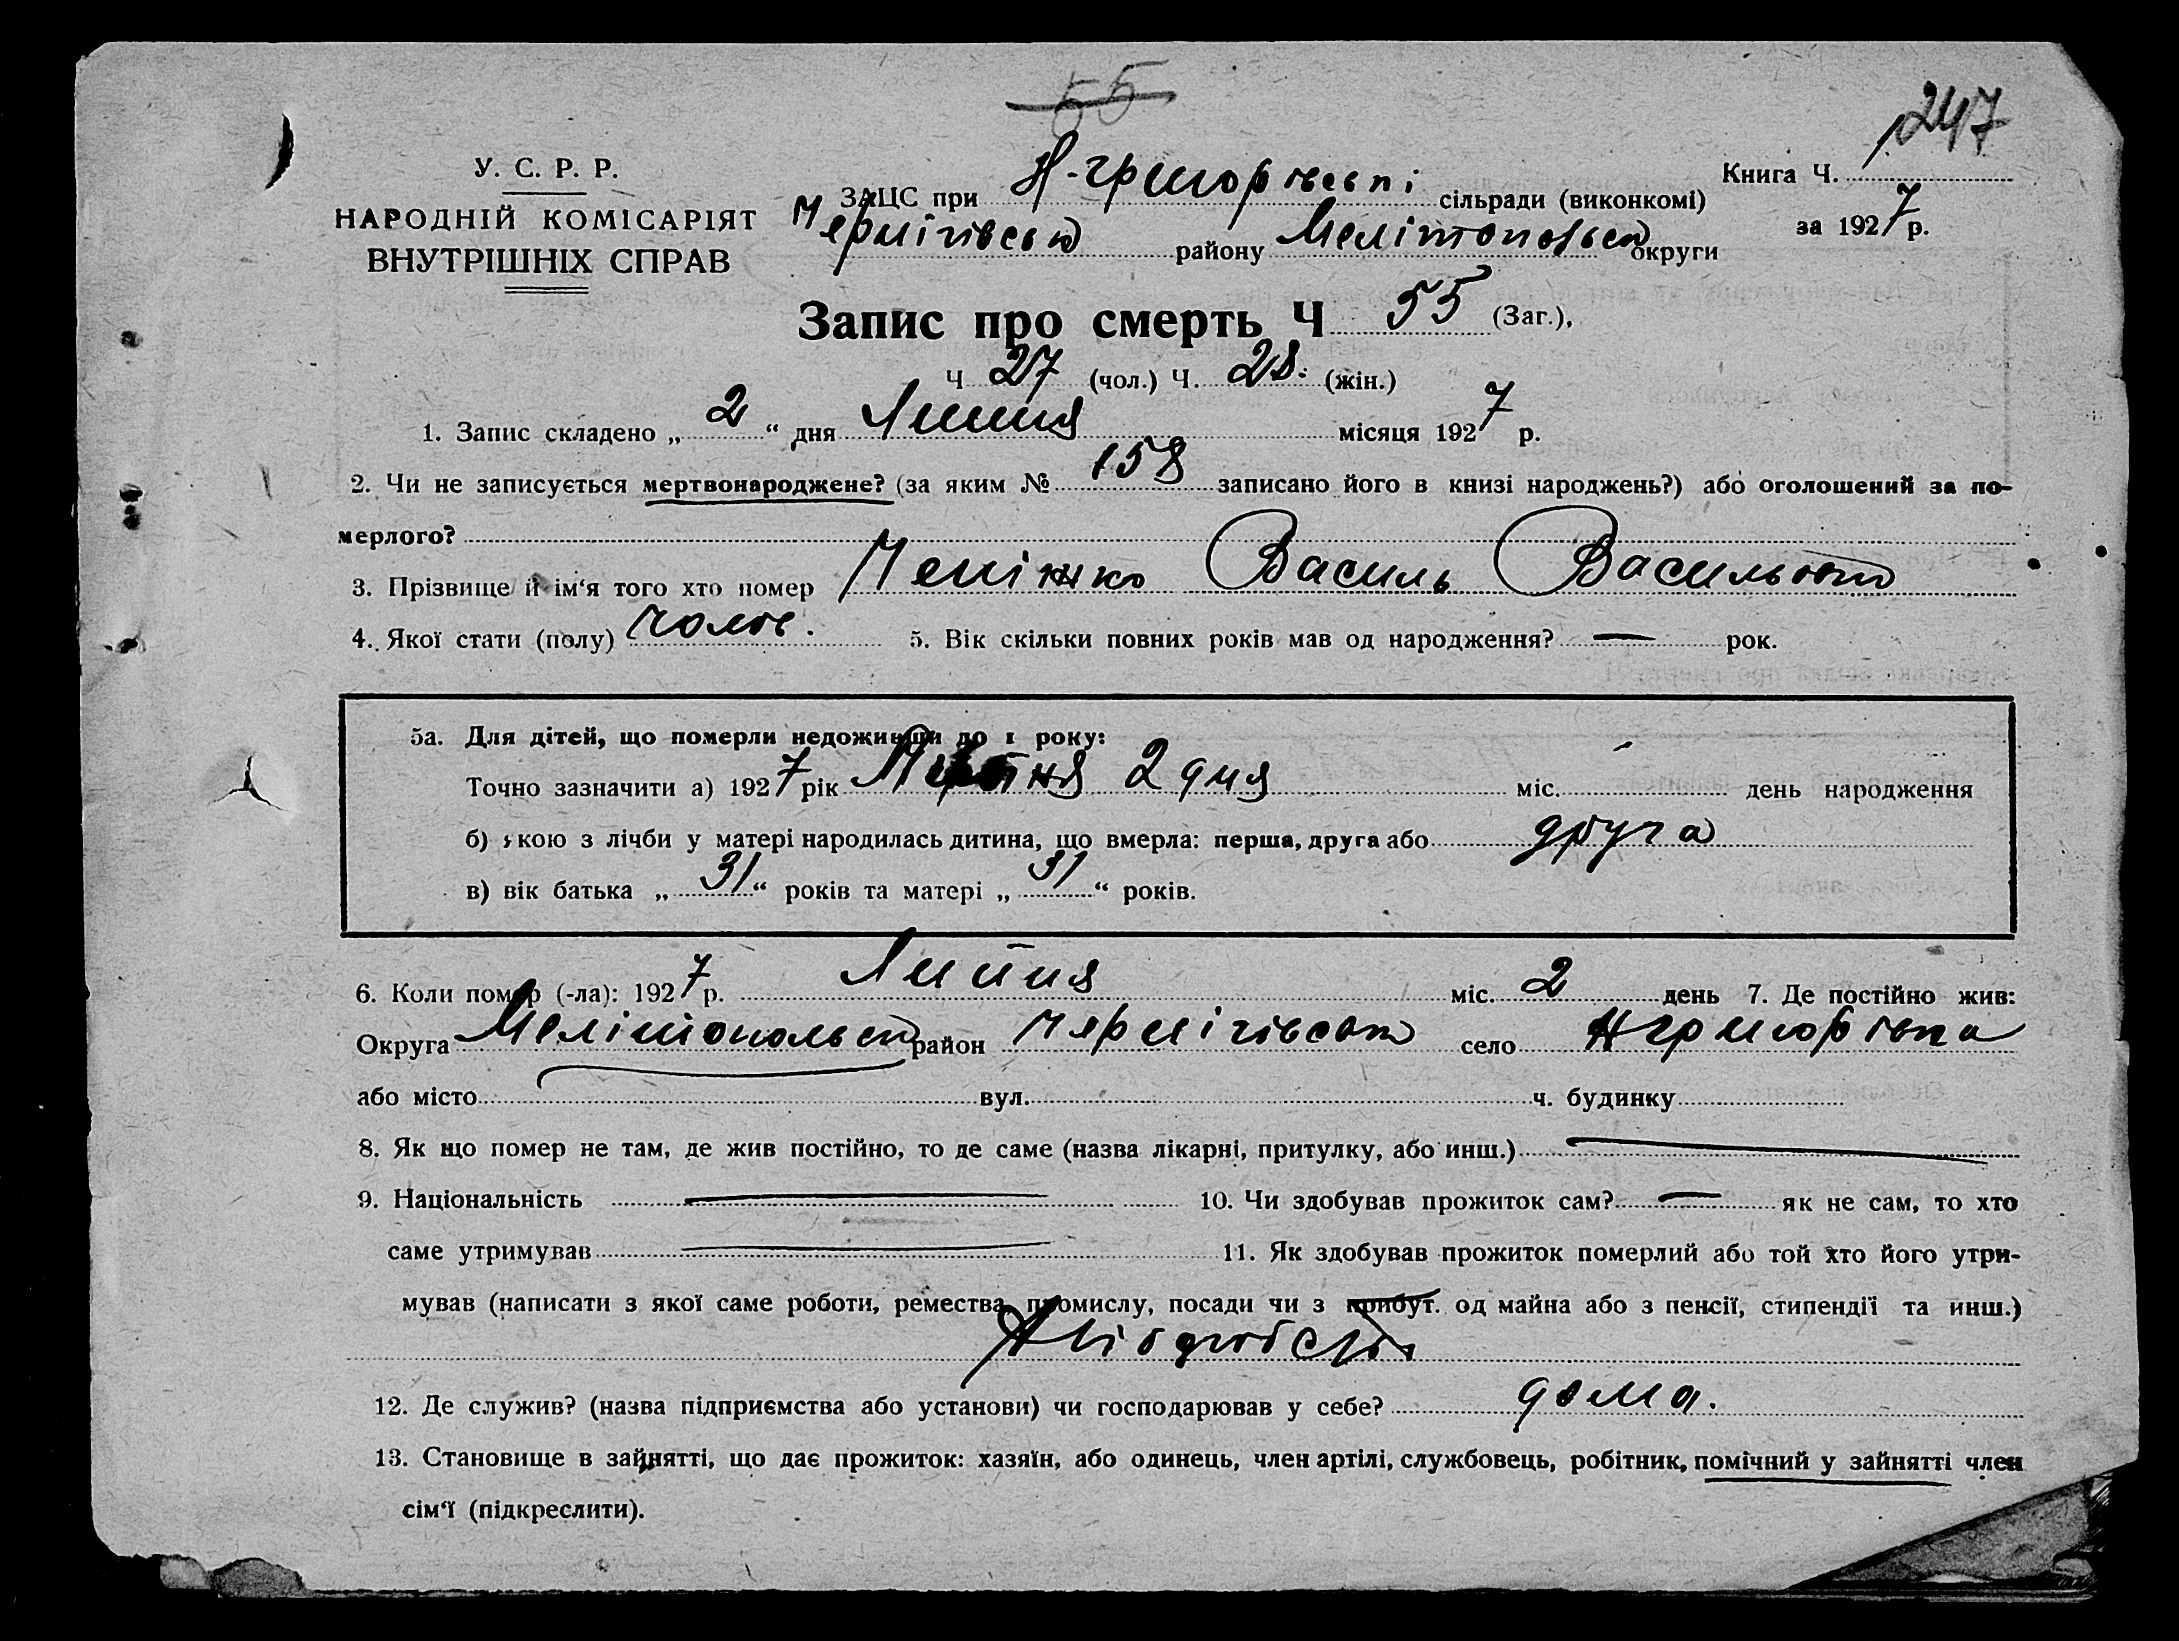 55
247
У. С. Р. Р.
НАРОДНІЙ КОМІСАРІЯТ
ВНУТРІШНІХ СПРАВ
ЗАЦС при Н-григорівські сільради (виконкомі)
Чернігівськ району Мелітопольськ округи
Книга Ч.
за 1927 р.
Запис про смерть Ч 55 (Заг.),
Ч 27 (чол.) Ч. 28. (жін.)
1. Запис складено „ 2 “ дня Липня місяця 1927 р.
2. Чи не записується мертвонароджене? (за яким № 158 записано його в книзі народжень?) або оголошений за по-
мерлого?
3. Прізвище й ім‘я того хто помер Василь Васильов
4. Якої стати (полу) чолов. 5. Вік скільки повних років мав од народження? — рок.
5а. Для дітей, що померли недоживши до 1 року:
Точно зазначити а) 1927 рік 2 дня міс. день народження
б) якою з лічби у матері народилась дитина, що вмерла: перша, друга або друга
в) вік батька „ 31 “ років та матері „ 31 “ років.
6. Коли помер (-ла): 1927 р. Липня міс. 2 день 7. Де постійно жив:
Округа Мелітопольськ район Чернігівськ село Н григорівка
або місто вул. ч. будинку
8. Як що помер не там, де жив постійно, то де саме (назва лікарні, притулку, або инш.) —
9. Національність — 10. Чи здобував прожиток сам? — як не сам, то хто
саме утримував — 11. Як здобував прожиток померлий або той хто його утри-
мував (написати з якої саме роботи, ремества, промислу, посади чи з прибут. од майна або з пенсії, стипендії та инш.)
12. Де служив? (назва підприємства або установи) чи господарював у себе? дома.
13. Становище в зайнятті, що дає прожиток: хазяїн, або одинець, член артілі, службовець, робітник, помічний у зайнятті член
сім‘ї (підкреслити).